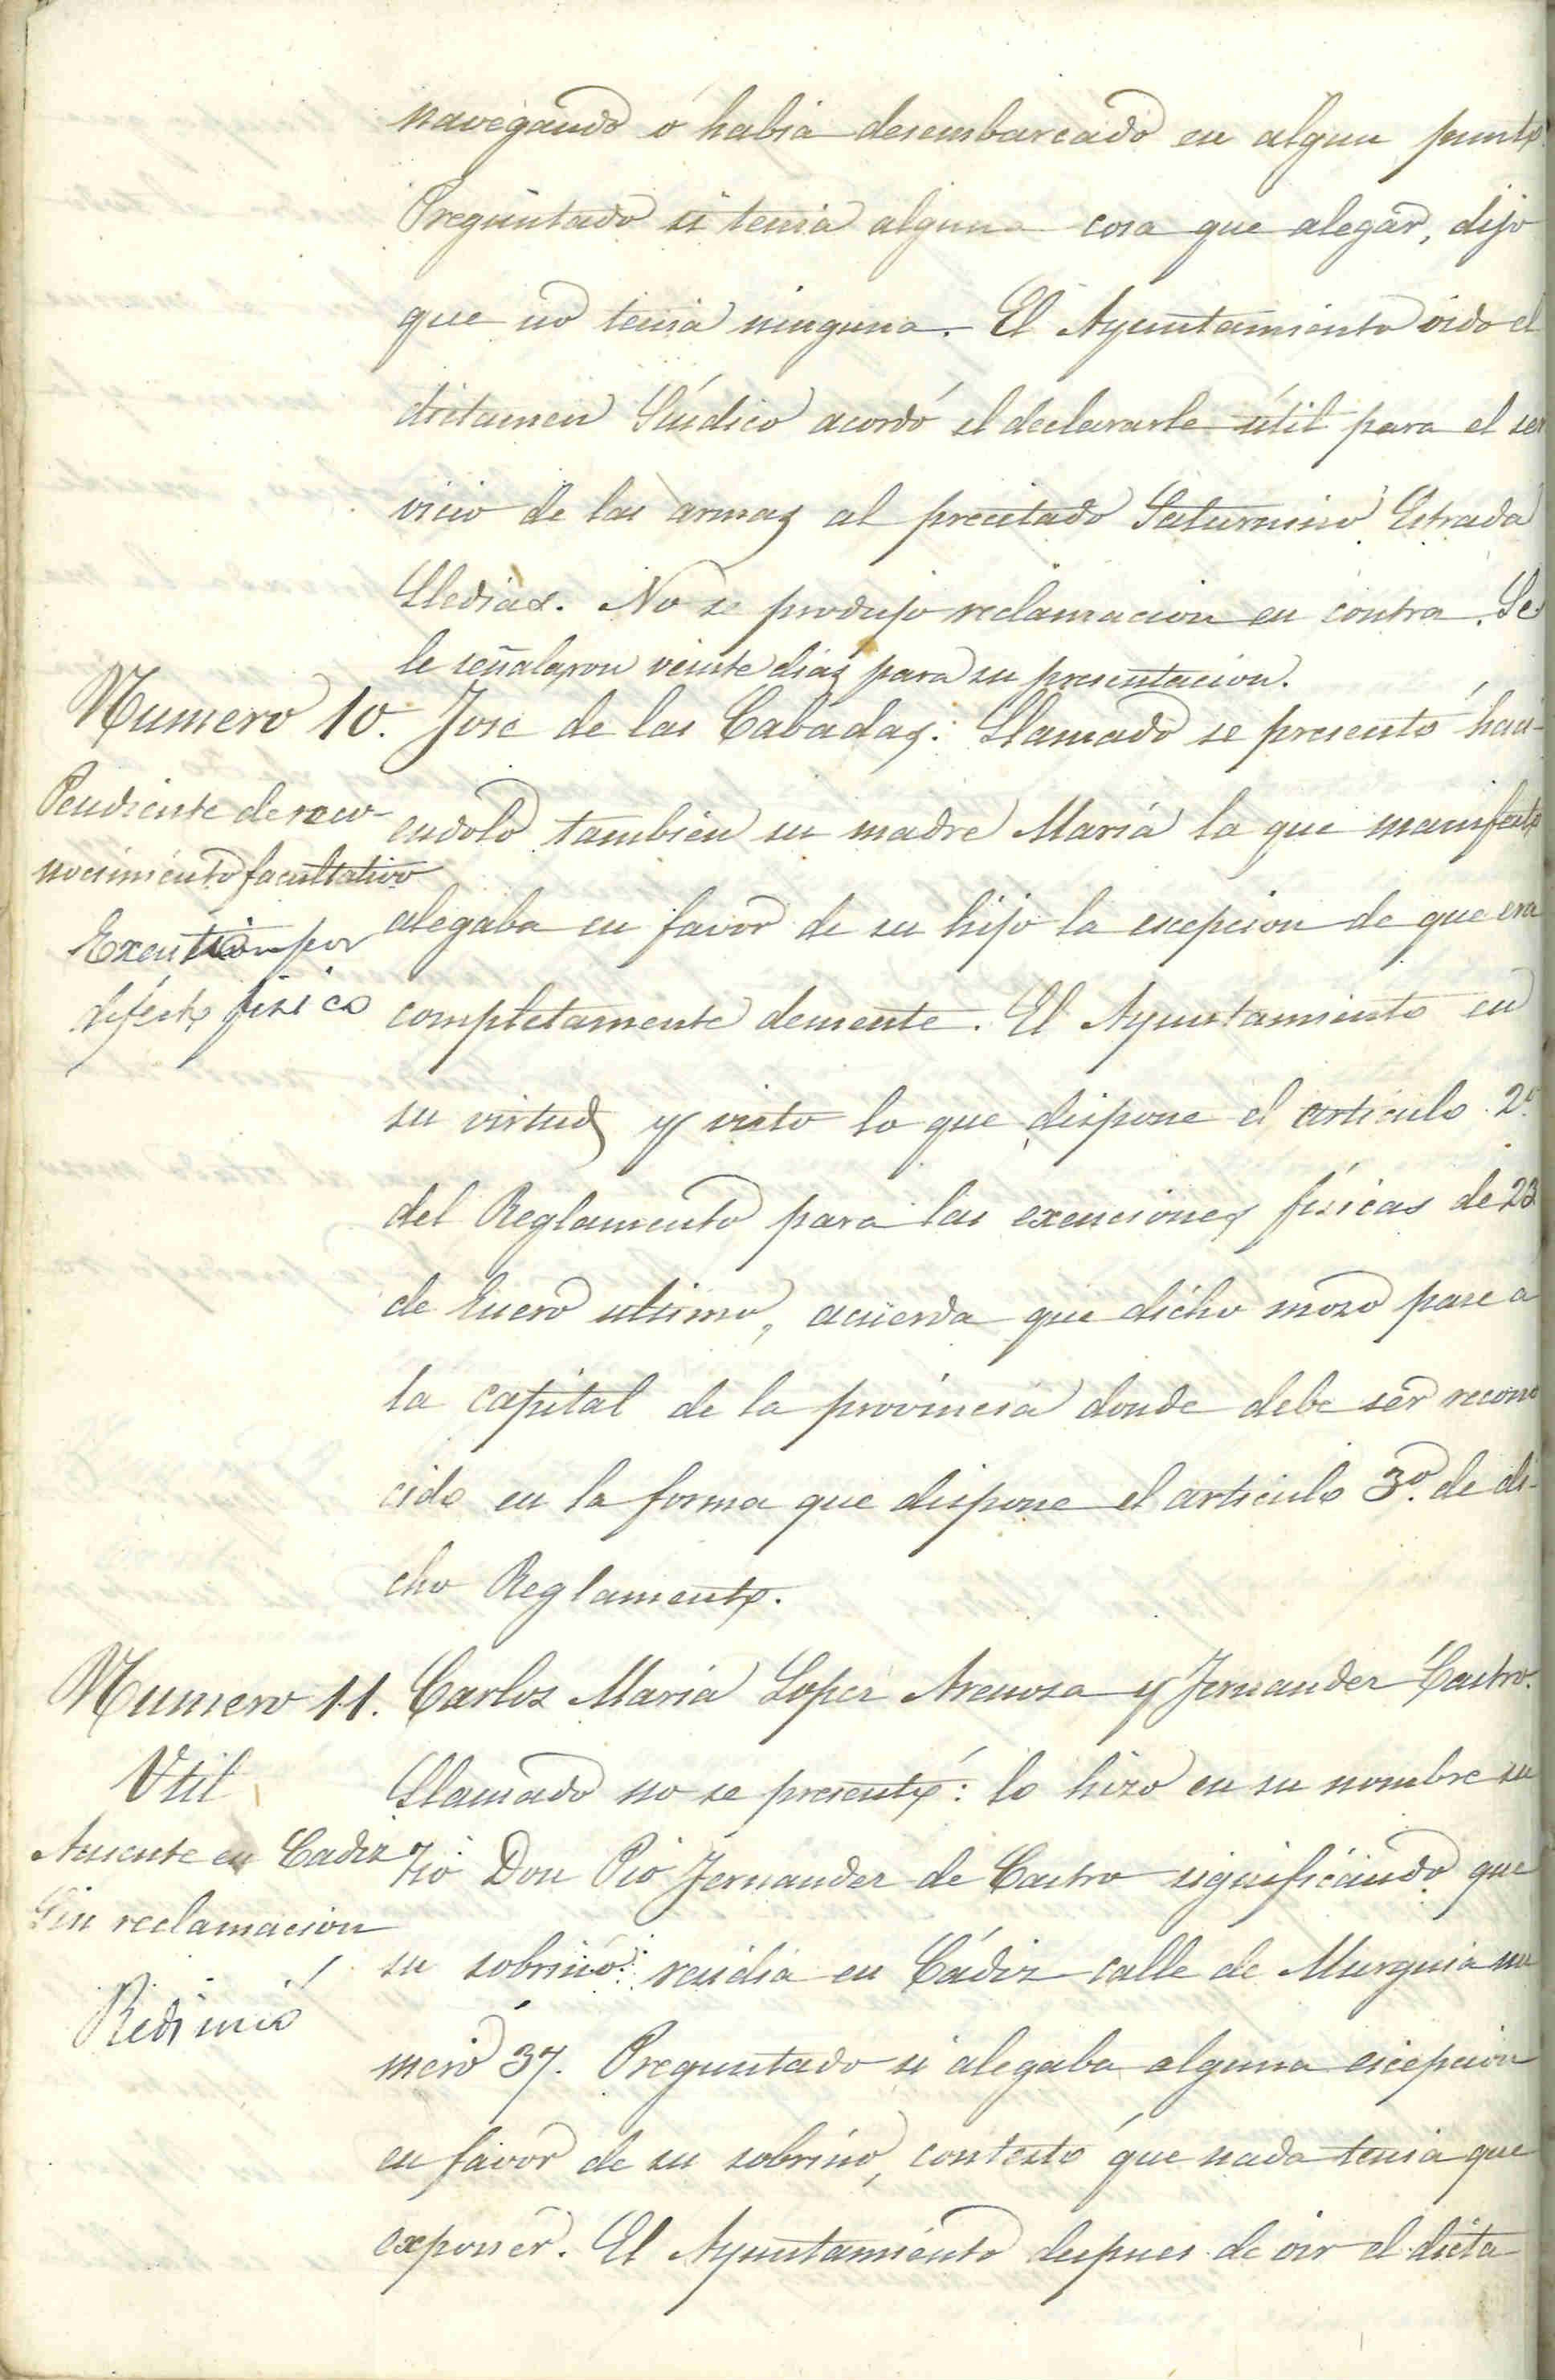 navegando ó habia desembarcado en algun punto.
Preguntado si tenia alguna cosa que alegar, dijo
que no tenia ninguna. El Ayuntamiento oido el
dictamen Síndico acordó el declararle útil para el ser
vicio de las armas al precitado Saturnino Estrada
Lledias. No se produjo reclamacion en contra. Se
le señalaron veinte dias para su presentacion.
Numero 10. Jose de las Cabadas. Llamado se presentó haci-
Pendiente de reco-
nocimiento facultativo
Exention por
defecto fisico
endolo tambien su madre Maria la que manifestó
alegaba en favor de su hijo la escepcion de que era
completamente demente. El Ayuntamiento en
su virtud y visto lo que dispone el articulo 2º
del Reglamento para las exenciones físicas de 23
de Enero ultimo, acuerda que dicho mozo pase a
la capital de la provincia donde debe ser recono
cido en la forma que dispone el articulo 3º. de di-
cho Reglamento.
Numero 11. Carlos Maria Lopez Arenosa y Fernandez Castro.
Util
Ausente en Cadiz
Sin reclamacion
Redimió
Llamado no se presentó: lo hizo en su nombre su
tio Don Pio Fernandez de Castro significando que
su sobrino residia en Cádiz calle de Murguia nu
mero 37. Preguntado si alegaba alguna escepcion
en favor de su sobrino, contestó que nada tenia que
exponer. El Ayuntamiento despues de oir el dicta